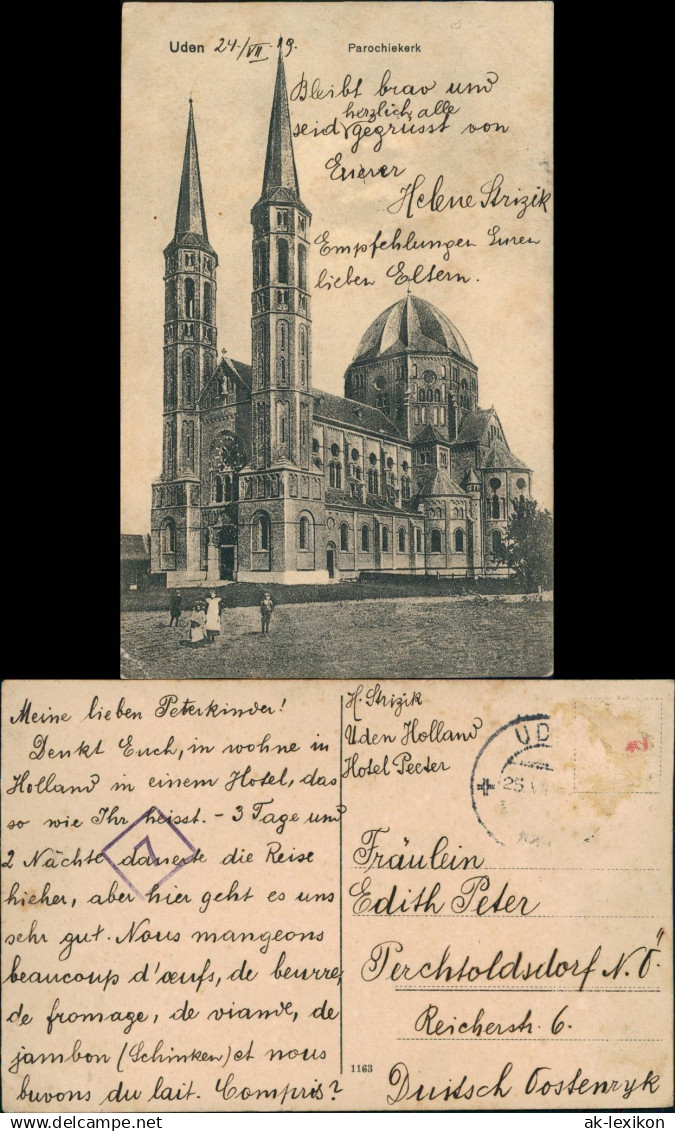 Uden 24/VII 19.
Parochiekerk
Bleibt brav und
herzlich alle
seid gegrüsst von
Euerer
Helene Strizik
Empfehlungen Euren
lieben Eltern.
Meine lieben Peterkinder!
Denkt Euch, in wohne in
Holland in einem Hotel, das
so wie Ihr heisst. - 3 Tage und
2 Nächte dauerte die Reise
hieher, aber hier geht es uns
sehr gut. Nous mangeons
beaucoup d'œufs, de beurre,
de fromage, de viande, de
jambon (Schinken) et nous
buvons du lait. Compris?
7
H. Strizik
Uden Holland
Hotel Peeter
UD
25
Fräulein
Edith Peter
Perchtoldsdorf N.Ö.
Reicherstr. 6.
Duitsch Oostenryk
1163
ak-lexikon